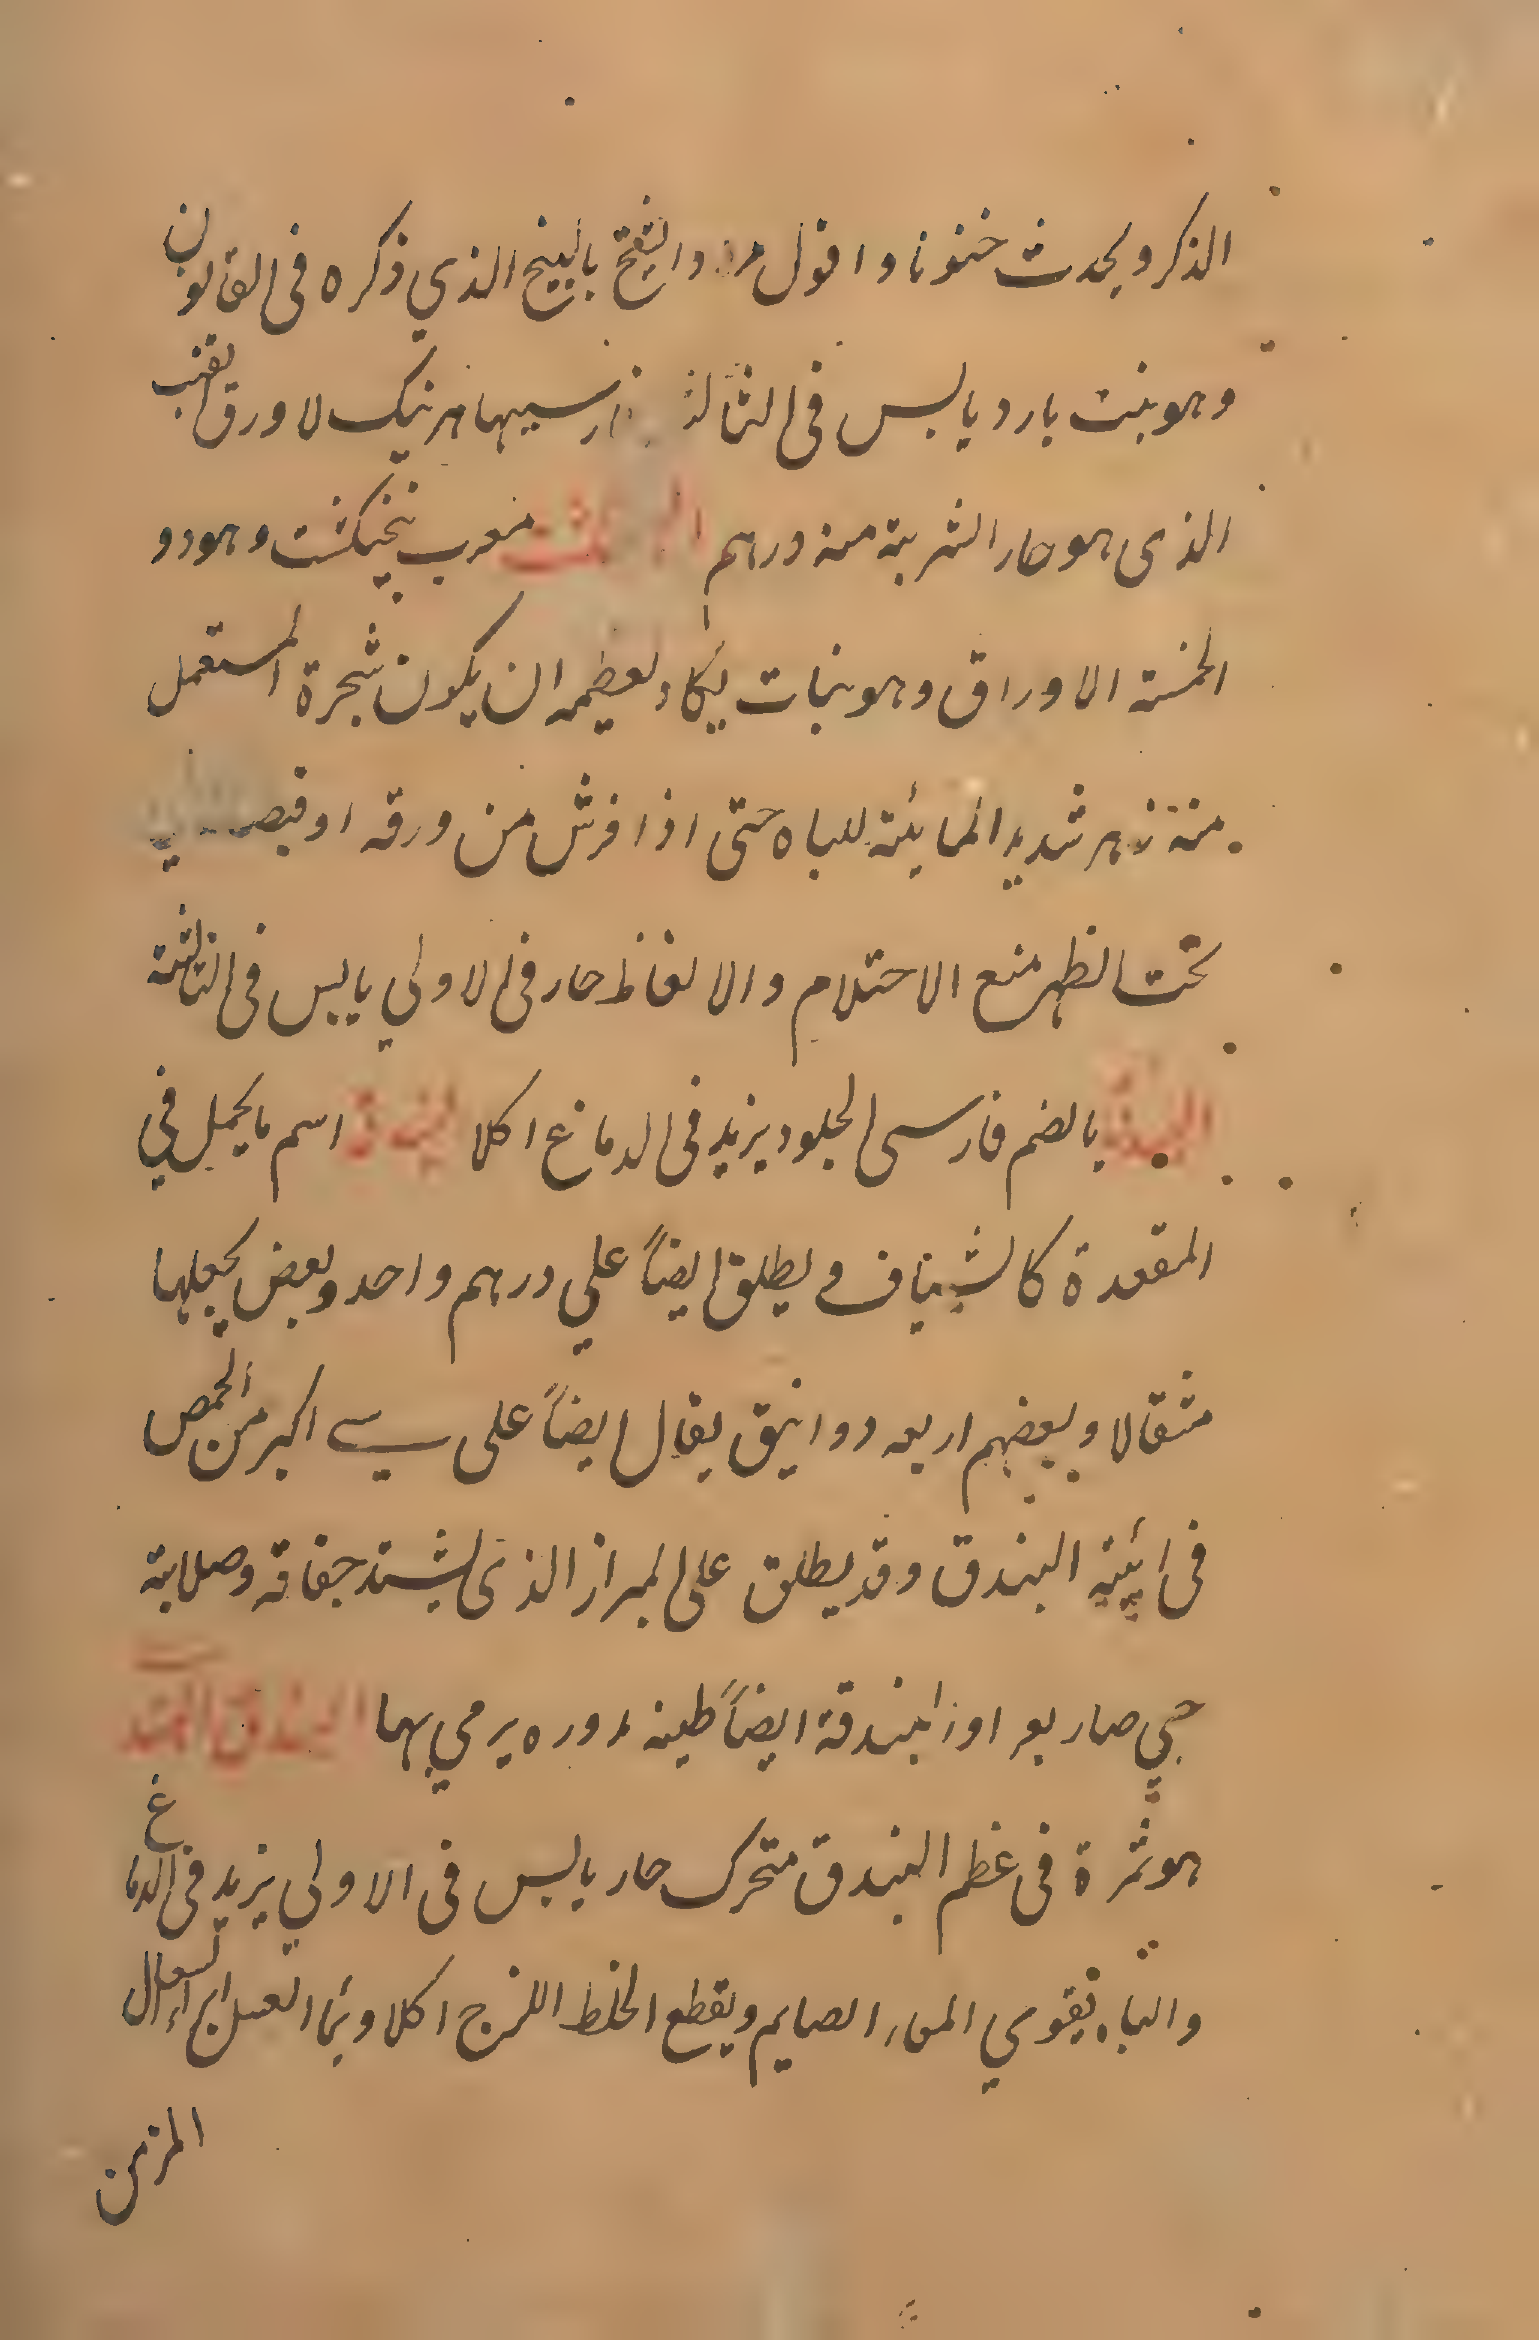 الذكر ويحدث خنونا واقول مراد الشيخ بالبنج الذي ذكره فى القانون
وهو بنت بارد يابس فى الثالثة فارسيها هرنيك لا ورق القنب
الذى هو حار الشربة منه درهم البنجنكشت معرب پنجنكشت وهو ذو
الخمسة الاوراق وهو نبات يكاد لعظمه ان يكون شجرة المستعمل
منة زهر شديد المايئة للباه حتى اذا فرش من ورقه او
تحت الظهر منع الاحتلام والانعاظ حار فى الاولي يابس فى الثالثة
البندق بالضم فارسى الجلود يزيد فى الدماغ اكلا البندقة اسم ما يحمل في
المقعدة كالشياف ويطلق ايضاً علي درهم واحد وبعض يجعلها
مثقالا وبعضهم اربعه دوانيق يقال ايضاً على شيء اكبر من الحمص
فى هيئة البندق وقد يطلق على البراز الذى يشتد جفافه وصلابته
حتي صار بعرا والبندقة ايضاً طينه مدوره يرمي بها البندق الهندي
هو ثمرة فى عظم البندق متحرك حار يابس فى الاولي يزيد فى الدماغ
والباه يقوي المعاء الصايم ويقطع الخلط اللزج اكلا وبماء العسل ابراء السعال
المزمن